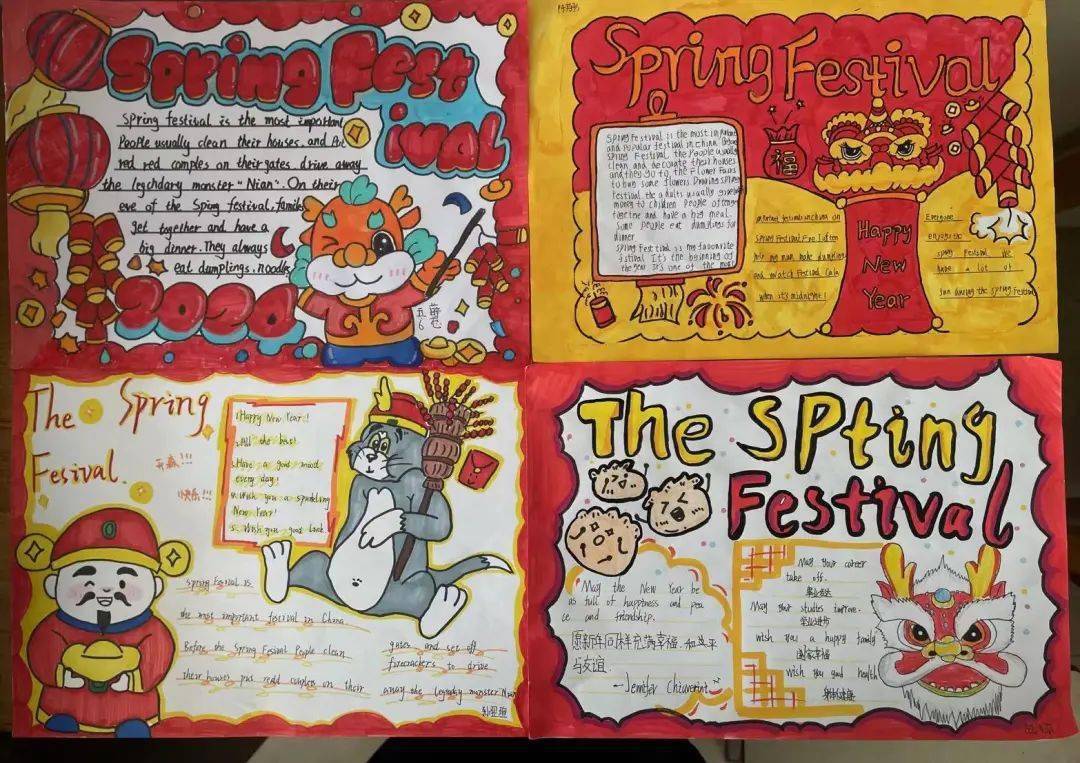 Spring Fest
ival
Spring festival is the most important
People usually clean their houses, and Put
red red comples on their gates drive away
the legendary monster "Nian". On their
eve of the Sping festival, families
get together and have a
big dinner. They always
eat dumplings, noodles
2020
五6
Spring Festival
福
Spring Festival is the most
and Popular festival in china. Before
Spring Festival the People usually
clean and decorate their houses
and they go to the Flower Fairs
to buy some flowers. During Spring
Festival the adults usually give
money to children People often get
together and have a big meal.
Some people eat dumplings for
dinner.
Spring Festival is my favourite
festival. It's the beginning of
the year It's one of the most
festivals in china on
Spring Festival Eve
make dumplings
and watch Festival Gala
when it's midnight!
Happy
New
Year
Everyone
enjoys
Spring Festival We
have a lot of
fun during the Spring Festival
The Spring
Fesival.
开心!!!
快乐!!!
1.Happy New Year!
2.All the best!
3.Have a good mood
every day!
4.Wish you a sparkling
New Year!
5. Wish you good luck
Spring Fesival is
the most important festival in China
Before the Spring Fesival People clean
their houses put redd couples on their
gates and set off
firecrackers to drive
away the legendary monster "Nian"
The SPting
Festival
May the New Year be
as full of happiness and pea
ce and friendship.
愿新年同样充满幸福,和平
与友谊
—Jennifer Chiaverini
May your career
take off.
事业有成
May your studies improve.
学业进步
wish you a happy family
阖家幸福
wish you good health
身体健康